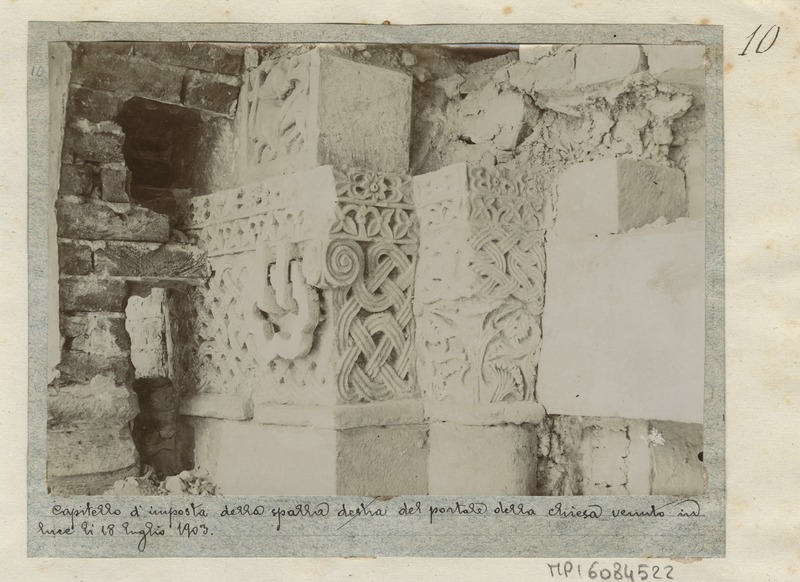 10
10
Capitello d'imposta della spalla destra del portale della chiesa venuto in
luce li 18 luglio 1903.
MPI6084522